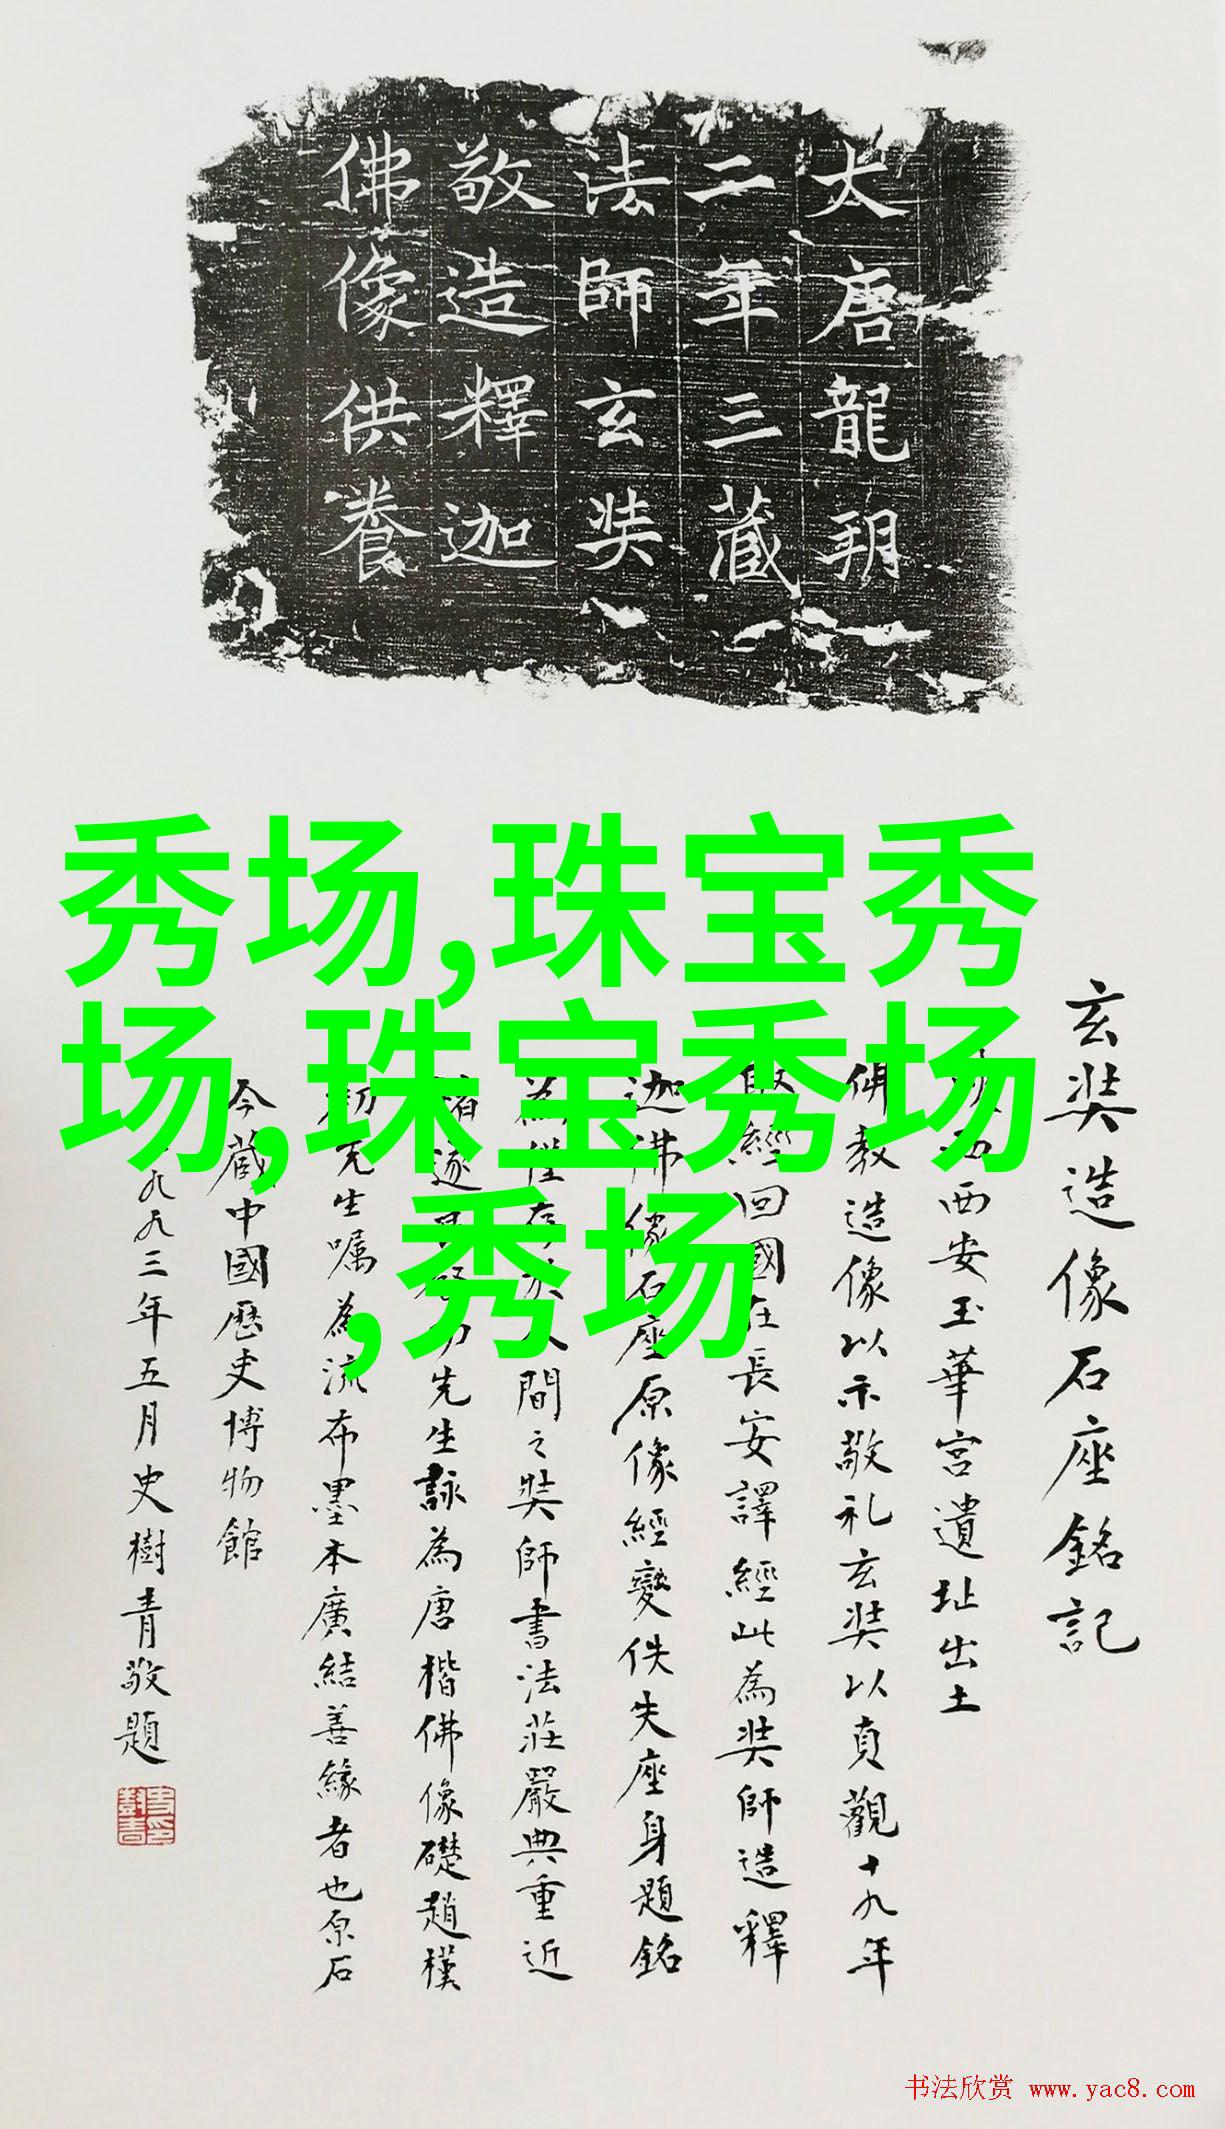 大唐龍朔
二年三藏
法師玄奘
敬造釋迦
佛像供養
秀场,珠宝秀
场,珠宝秀场
,秀场
玄奘造像石座銘記
西西安玉華宮遺址出土
佛教造像以示敬礼玄奘以貞觀十九年
取經回國在長安譯經此為奘師造釋
迦佛像石座原像經變佚失座身題銘
為僅存於人間之奘師書法莊嚴典重近
功先生詠為唐楷佛像礎趙樸
初先生嘱為流布墨本廣結善緣者也原石
今藏中國歷史博物館
一九九三年五月史樹青敬題
书法欣赏 www.yac8.com